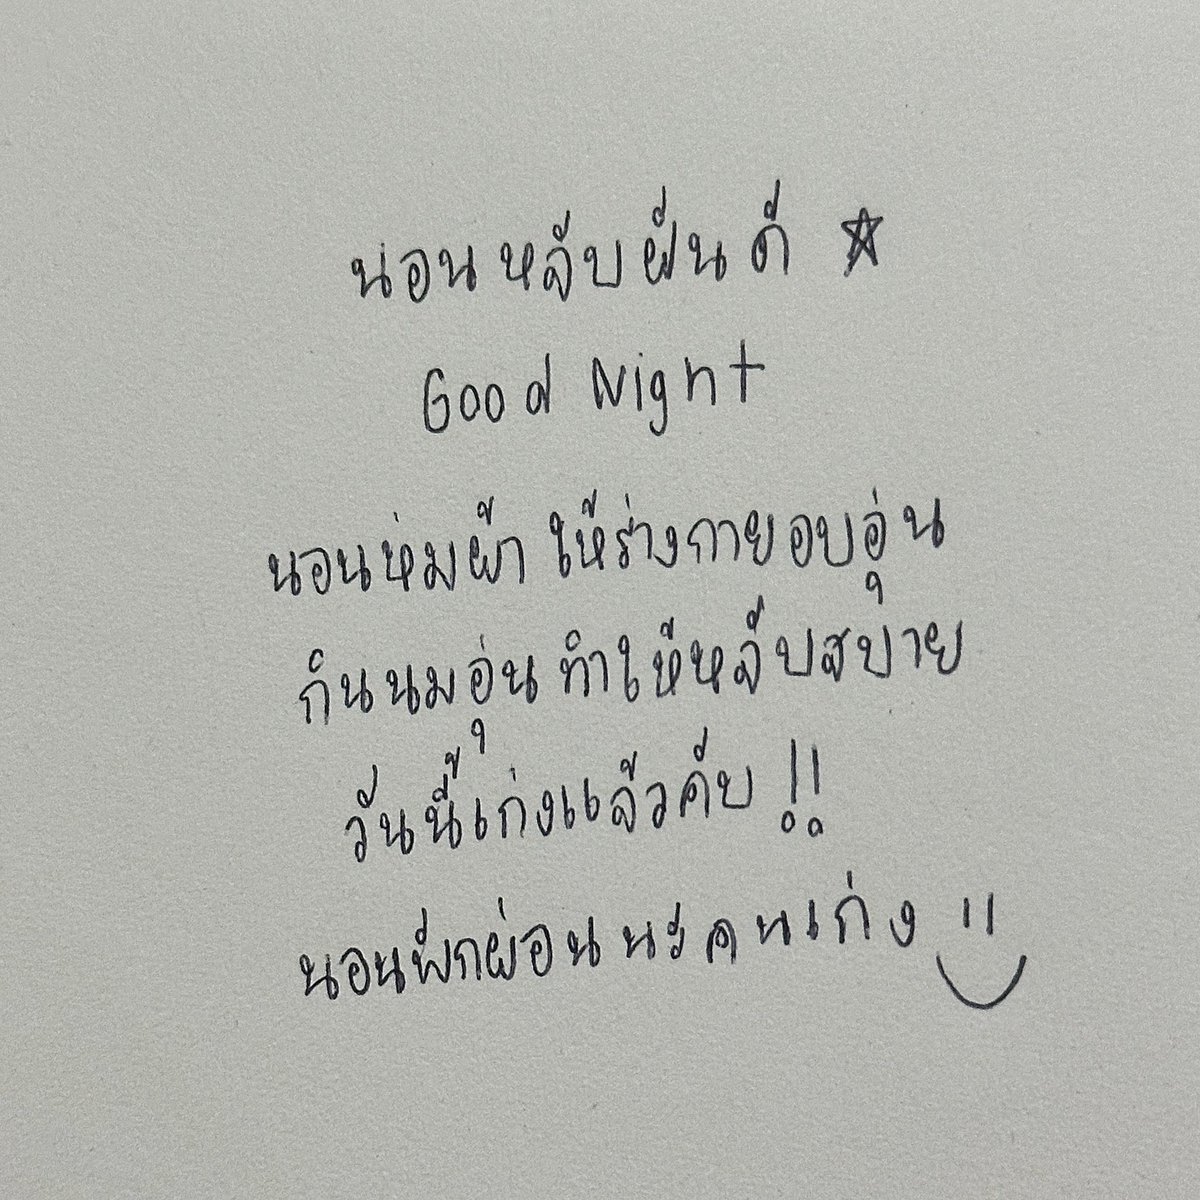 นอนหลับฝันดี ☆
Good Night
นอนห่มผ้า ให้ร่างกายอบอุ่น
กินนมอุ่น ทำให้หลับสบาย
วันนี้เก่งแล้วคับ !!
นอนพักผ่อนนะคนเก่ง